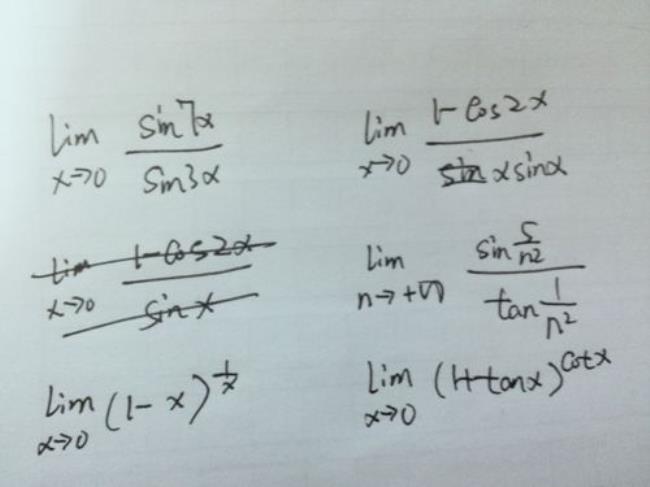 lim x→0 sin7x / sin3x
lim x→0 1-cos2x / x sinx
lim n→+∞ sin 5/n² / tan 1/n²
lim x→0 (1-x)^(1/x)
lim x→0 (1+tanx)^cotx